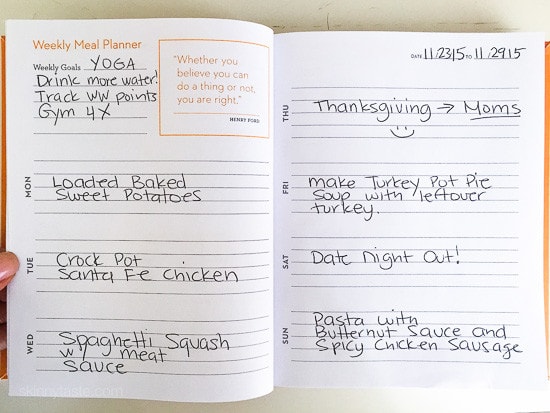 Weekly Meal Planner
Weekly Goals YOGA
Drink more water!
Track WW points
Gym 4X
"Whether you
believe you can
do a thing or not,
you are right."
HENRY FORD
MON
Loaded Baked
Sweet Potatoes
TUE
Crock Pot
Santa Fe Chicken
WED
Spaghetti Squash
w/ meat
Sauce
DATE 11/23/15 TO 11/29/15
THU
Thanksgiving → Moms
FRI
make Turkey Pot Pie
Soup with leftover
turkey.
SAT
Date Night Out!
SUN
Pasta with
Butternut Sauce and
Spicy Chicken Sausage